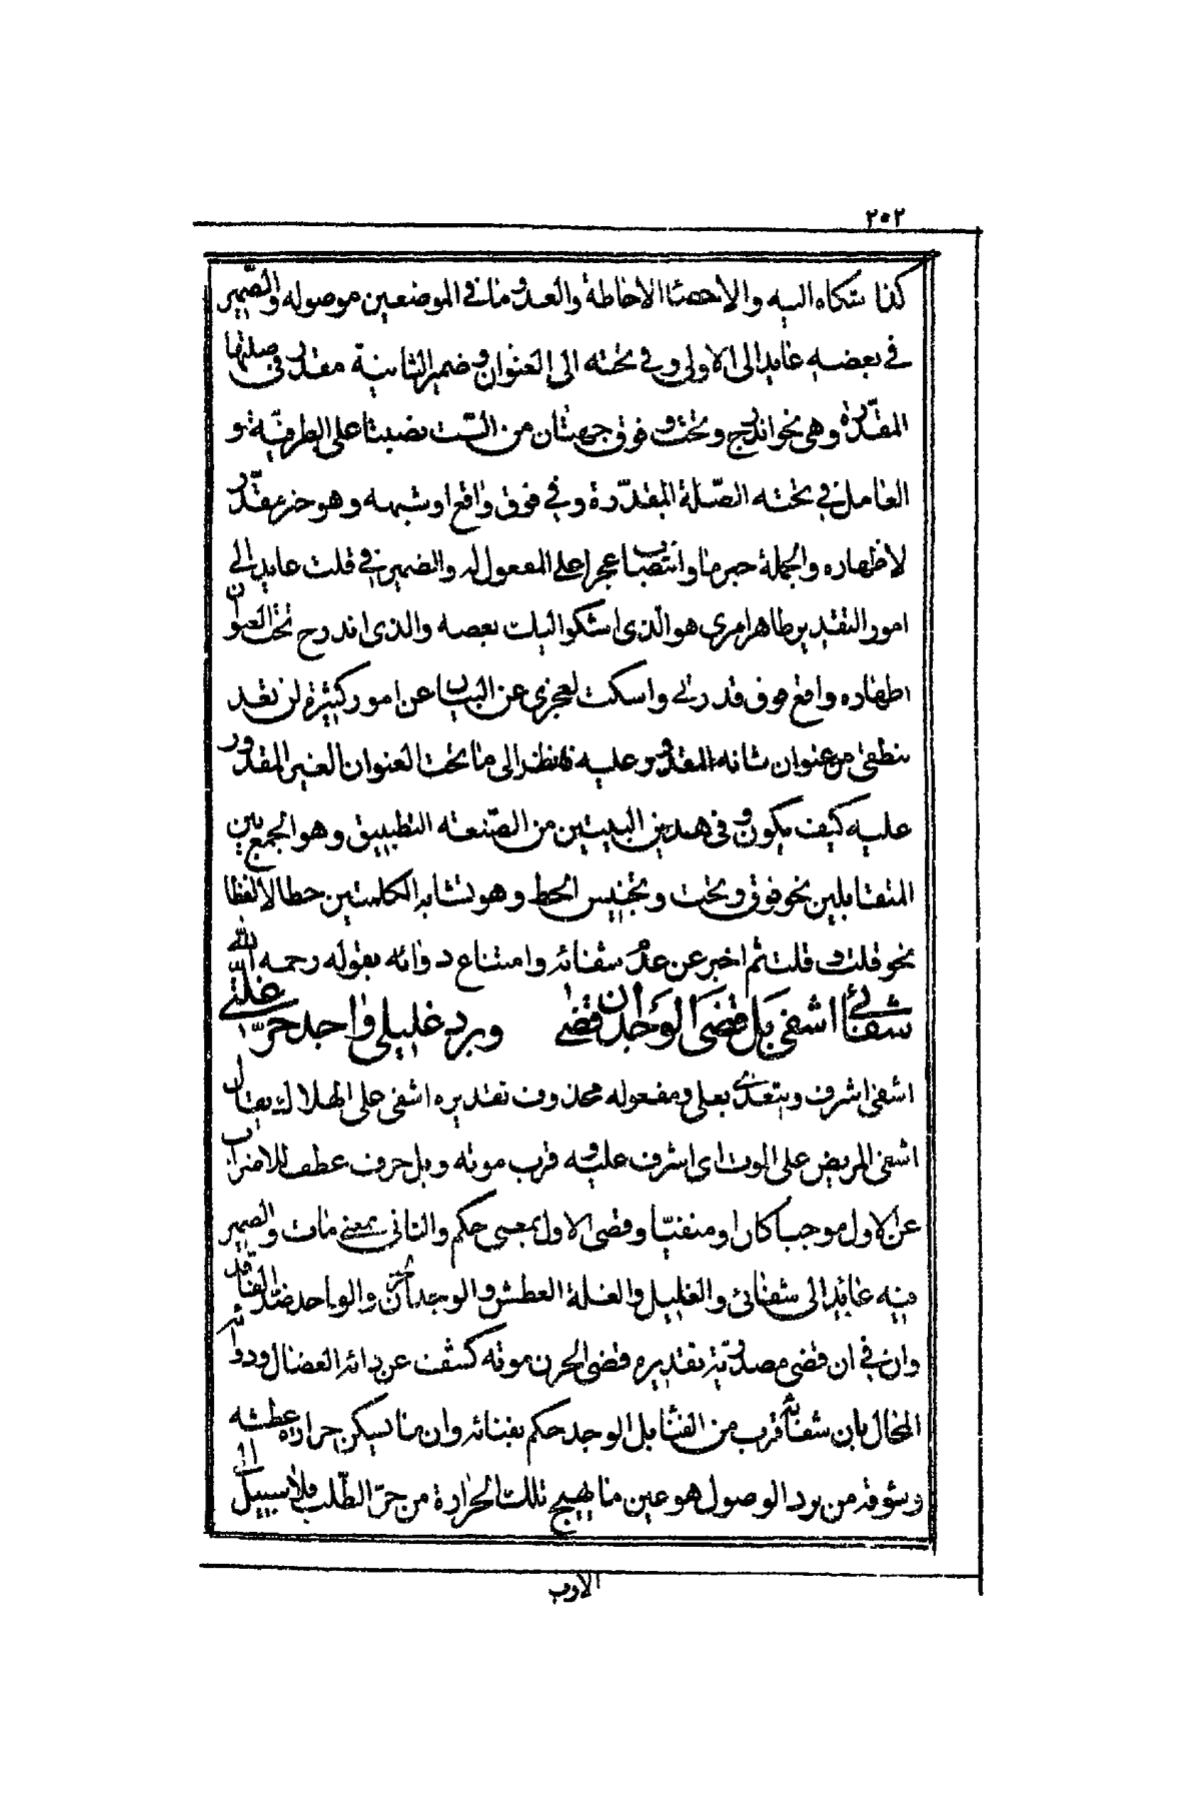 ٢٠٢
كذا شكاه اليه والاحصاء الاحاطة والعد وما فى الموضعين موصوله والضمير
فى بعضه عايد الى الاولى وفى تحته الى العنوان وضمير الثانية مقدر فى صلتها
المقدرة وهى نحو اندرج وتحت وفوق جهتان من الست نصبتا على الظرفية و
العامل فى تحته الصلة المقدرة وفى فوق واقع او شبهه وهو خبر مقدر
لاظهاره والجملة خبر ما وانتصب عجزا على المفعول له والضمير فى قلت عايد الى
امور التقدير ظاهر امرى هو الذى اشكو اليك بعضه والذى اندرج تحت العنوان
اظهاره واقع فوق قدرتى واسكت لعجزى عن البيان عن امور كثيرة لن تعد
بنطقى من عنوان شانه المقدور عليه فانظر الى ما تحت العنوان الغير المقدور
عليه كيف يكون وفى هذين البيتين من الصنعته التطبيق وهو الجمع بين
المتقابلين نحو فوق وتحت وتجنيس الخط وهو تشابه الكلمتين خطا لا لفظا
نحو قلت و قلت ثم اخبر عن عدم شفائه وامتناع دوائه بقوله رحمه الله
شفائى اشفى بل قضى الوجد ان قضى وبرد غليلى واجد حر غلتى
اشفى اشرف ويتعدى بعلى ومفعوله محذوف تقديره اشفى على الهلاك يقال
اشفى المريض على الموت اى اشرف عليه و قرب موته وبل حرف عطف للاضراب
عن الاول موجبا كان او منفيا وقضى الاول بمعنى حكم والثانى بمعنى مات والضمير
فيه عايد الى شفائى والغليل والغلة العطش والوجد الحزن والواجد ضد الفاقد
وان فى ان قضى مصدرية تقديره قضى الحزن موته كشفت عن دائه العضال ودوائه
المحال بان شفائه قرب من الفناء بل الوجد حكم بفنائه وان ما يسكن حرارة عطشه
وشوقه من برد الوصول هو عين ما يهيج تلك الحرارة من حر الطلب فلا سبيل الى
الاوب